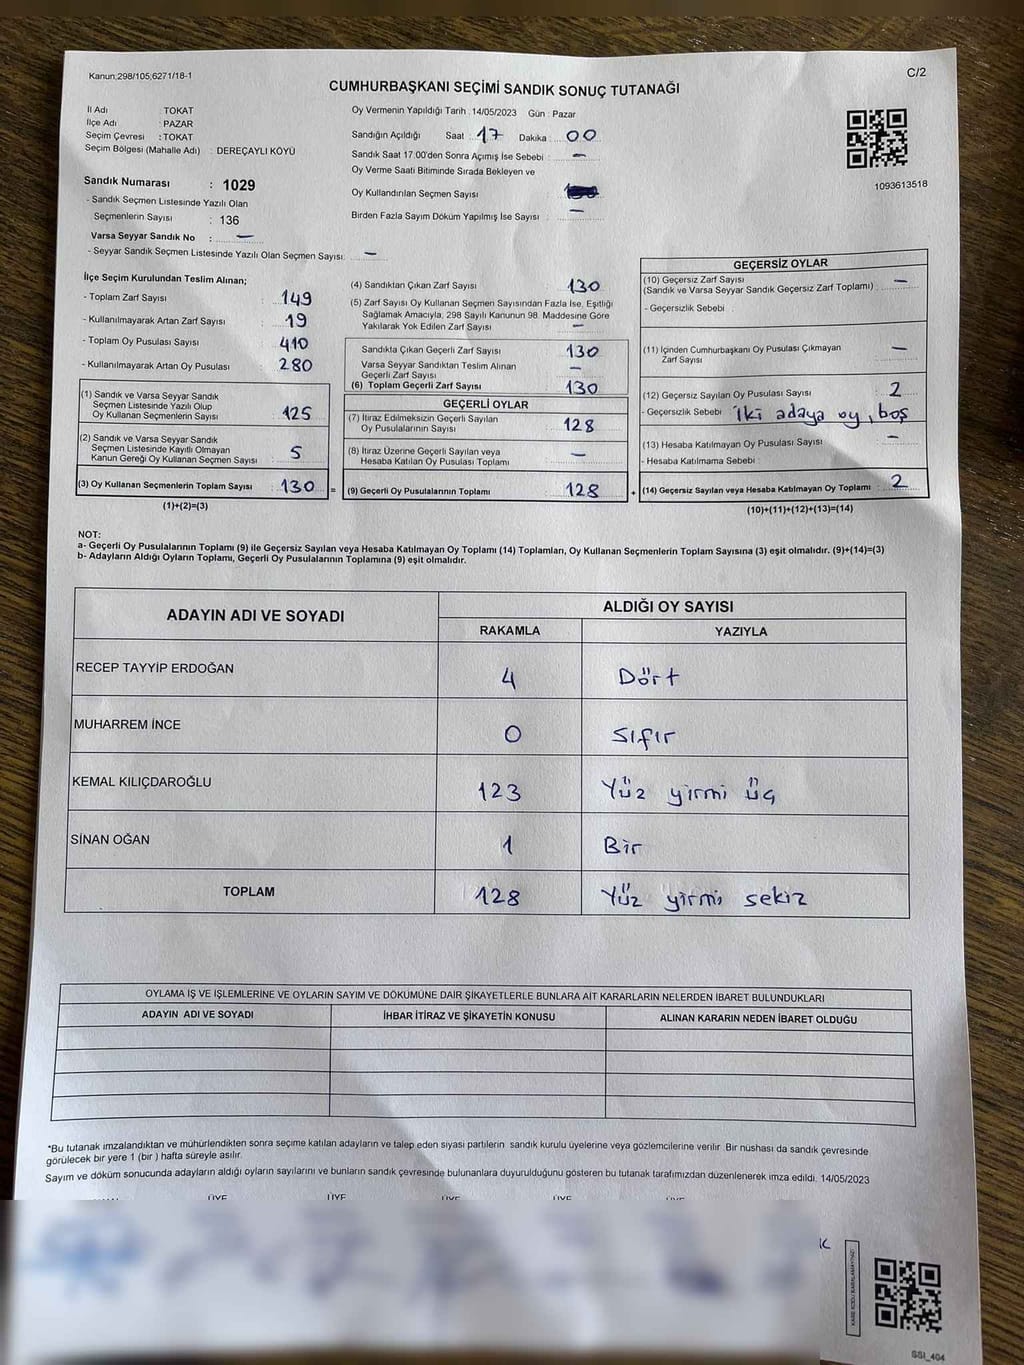 Kanun:298/105;6271/18-1
C/2
CUMHURBAŞKANI SEÇİMİ SANDIK SONUÇ TUTANAĞI
İl Adı TOKAT
İlçe Adı : PAZAR
Seçim Çevresi : TOKAT
Seçim Bölgesi (Mahalle Adı) : DEREÇAYLI KÖYÜ
Sandık Numarası : 1029
- Sandık Seçmen Listesinde Yazılı Olan
Seçmenlerin Sayısı : 136
Varsa Seyyar Sandık No : —
- Seyyar Sandık Seçmen Listesinde Yazılı Olan Seçmen Sayısı: —
Oy Vermenin Yapıldığı Tarih : 14/05/2023 Gün : Pazar
Sandığın Açıldığı Saat : 17 Dakika : 00
Sandık Saat 17:00'den Sonra Açımış İse Sebebi : —
Oy Verme Saati Bitiminde Sırada Bekleyen ve
Oy Kullandırılan Seçmen Sayısı
Birden Fazla Sayım Döküm Yapılmış İse Sayısı : —
1093613518
İlçe Seçim Kurulundan Teslim Alınan;
- Toplam Zarf Sayısı : 149
- Kullanılmayarak Artan Zarf Sayısı : 19
- Toplam Oy Pusulası Sayısı : 410
- Kullanılmayarak Artan Oy Pusulası : 280
(1) Sandık ve Varsa Seyyar Sandık
Seçmen Listesinde Yazılı Olup
Oy Kullanan Seçmenlerin Sayısı : 125
(2) Sandık ve Varsa Seyyar Sandık
Seçmen Listesinde Kayıtlı Olmayan
Kanun Gereği Oy Kullanan Seçmen Sayısı : 5
(3) Oy Kullanan Seçmenlerin Toplam Sayısı : 130 =
(1)+(2)=(3)
(4) Sandıktan Çıkan Zarf Sayısı : 130
(5) Zarf Sayısı Oy Kullanan Seçmen Sayısından Fazla İse, Eşitliği
Sağlamak Amacıyla; 298 Sayılı Kanunun 98. Maddesine Göre
Yakılarak Yok Edilen Zarf Sayısı : —
Sandıkta Çıkan Geçerli Zarf Sayısı : 130
Varsa Seyyar Sandıktan Teslim Alınan
Geçerli Zarf Sayısı : —
(6) Toplam Geçerli Zarf Sayısı : 130
GEÇERLİ OYLAR
(7) İtiraz Edilmeksizin Geçerli Sayılan
Oy Pusulalarının Sayısı : 128
(8) İtiraz Üzerine Geçerli Sayılan veya
Hesaba Katılan Oy Pusulası Toplamı : —
(9) Geçerli Oy Pusulalarının Toplamı : 128 +
GEÇERSİZ OYLAR
(10) Geçersiz Zarf Sayısı
(Sandık ve Varsa Seyyar Sandık Geçersiz Zarf Toplamı) : —
- Geçersizlik Sebebi :
(11) İçinden Cumhurbaşkanı Oy Pusulası Çıkmayan
Zarf Sayısı : —
(12) Geçersiz Sayılan Oy Pusulası Sayısı : 2
- Geçersizlik Sebebi : İki adaya oy, boş
(13) Hesaba Katılmayan Oy Pusulası Sayısı : —
- Hesaba Katılmama Sebebi :
(14) Geçersiz Sayılan veya Hesaba Katılmayan Oy Toplamı : 2
(10)+(11)+(12)+(13)=(14)
NOT:
a- Geçerli Oy Pusulalarının Toplamı (9) ile Geçersiz Sayılan veya Hesaba Katılmayan Oy Toplamı (14) Toplamları, Oy Kullanan Seçmenlerin Toplam Sayısına (3) eşit olmalıdır. (9)+(14)=(3)
b- Adayların Aldığı Oyların Toplamı, Geçerli Oy Pusulalarının Toplamına (9) eşit olmalıdır.
ADAYIN ADI VE SOYADI ALDIĞI OY SAYISI
RAKAMLA YAZIYLA
RECEP TAYYİP ERDOĞAN 4 Dört
MUHARREM İNCE 0 Sıfır
KEMAL KILIÇDAROĞLU 123 Yüz yirmi üç
SİNAN OĞAN 1 Bir
TOPLAM 128 Yüz yirmi sekiz
OYLAMA İŞ VE İŞLEMLERİNE VE OYLARIN SAYIM VE DÖKÜMÜNE DAİR ŞİKAYETLERLE BUNLARA AİT KARARLARIN NELERDEN İBARET BULUNDUKLARI
ADAYIN ADI VE SOYADI İHBAR İTİRAZ VE ŞİKAYETİN KONUSU ALINAN KARARIN NEDEN İBARET OLDUĞU
*Bu tutanak imzalandıktan ve mühürlendikten sonra seçime katılan adayların ve talep eden siyasi partilerin sandık kurulu üyelerine veya gözlemcilerine verilir. Bir nüshası da sandık çevresinde
görülecek bir yere 1 (bir ) hafta süreyle asılır.
Sayım ve döküm sonucunda adayların aldığı oyların sayılarını ve bunların sandık çevresinde bulunanlara duyurulduğunu gösteren bu tutanak tarafımızdan düzenlenerek imza edildi. 14/05/2023
ÜYE ÜYE ÜYE ÜYE ÜYE
SSI_404